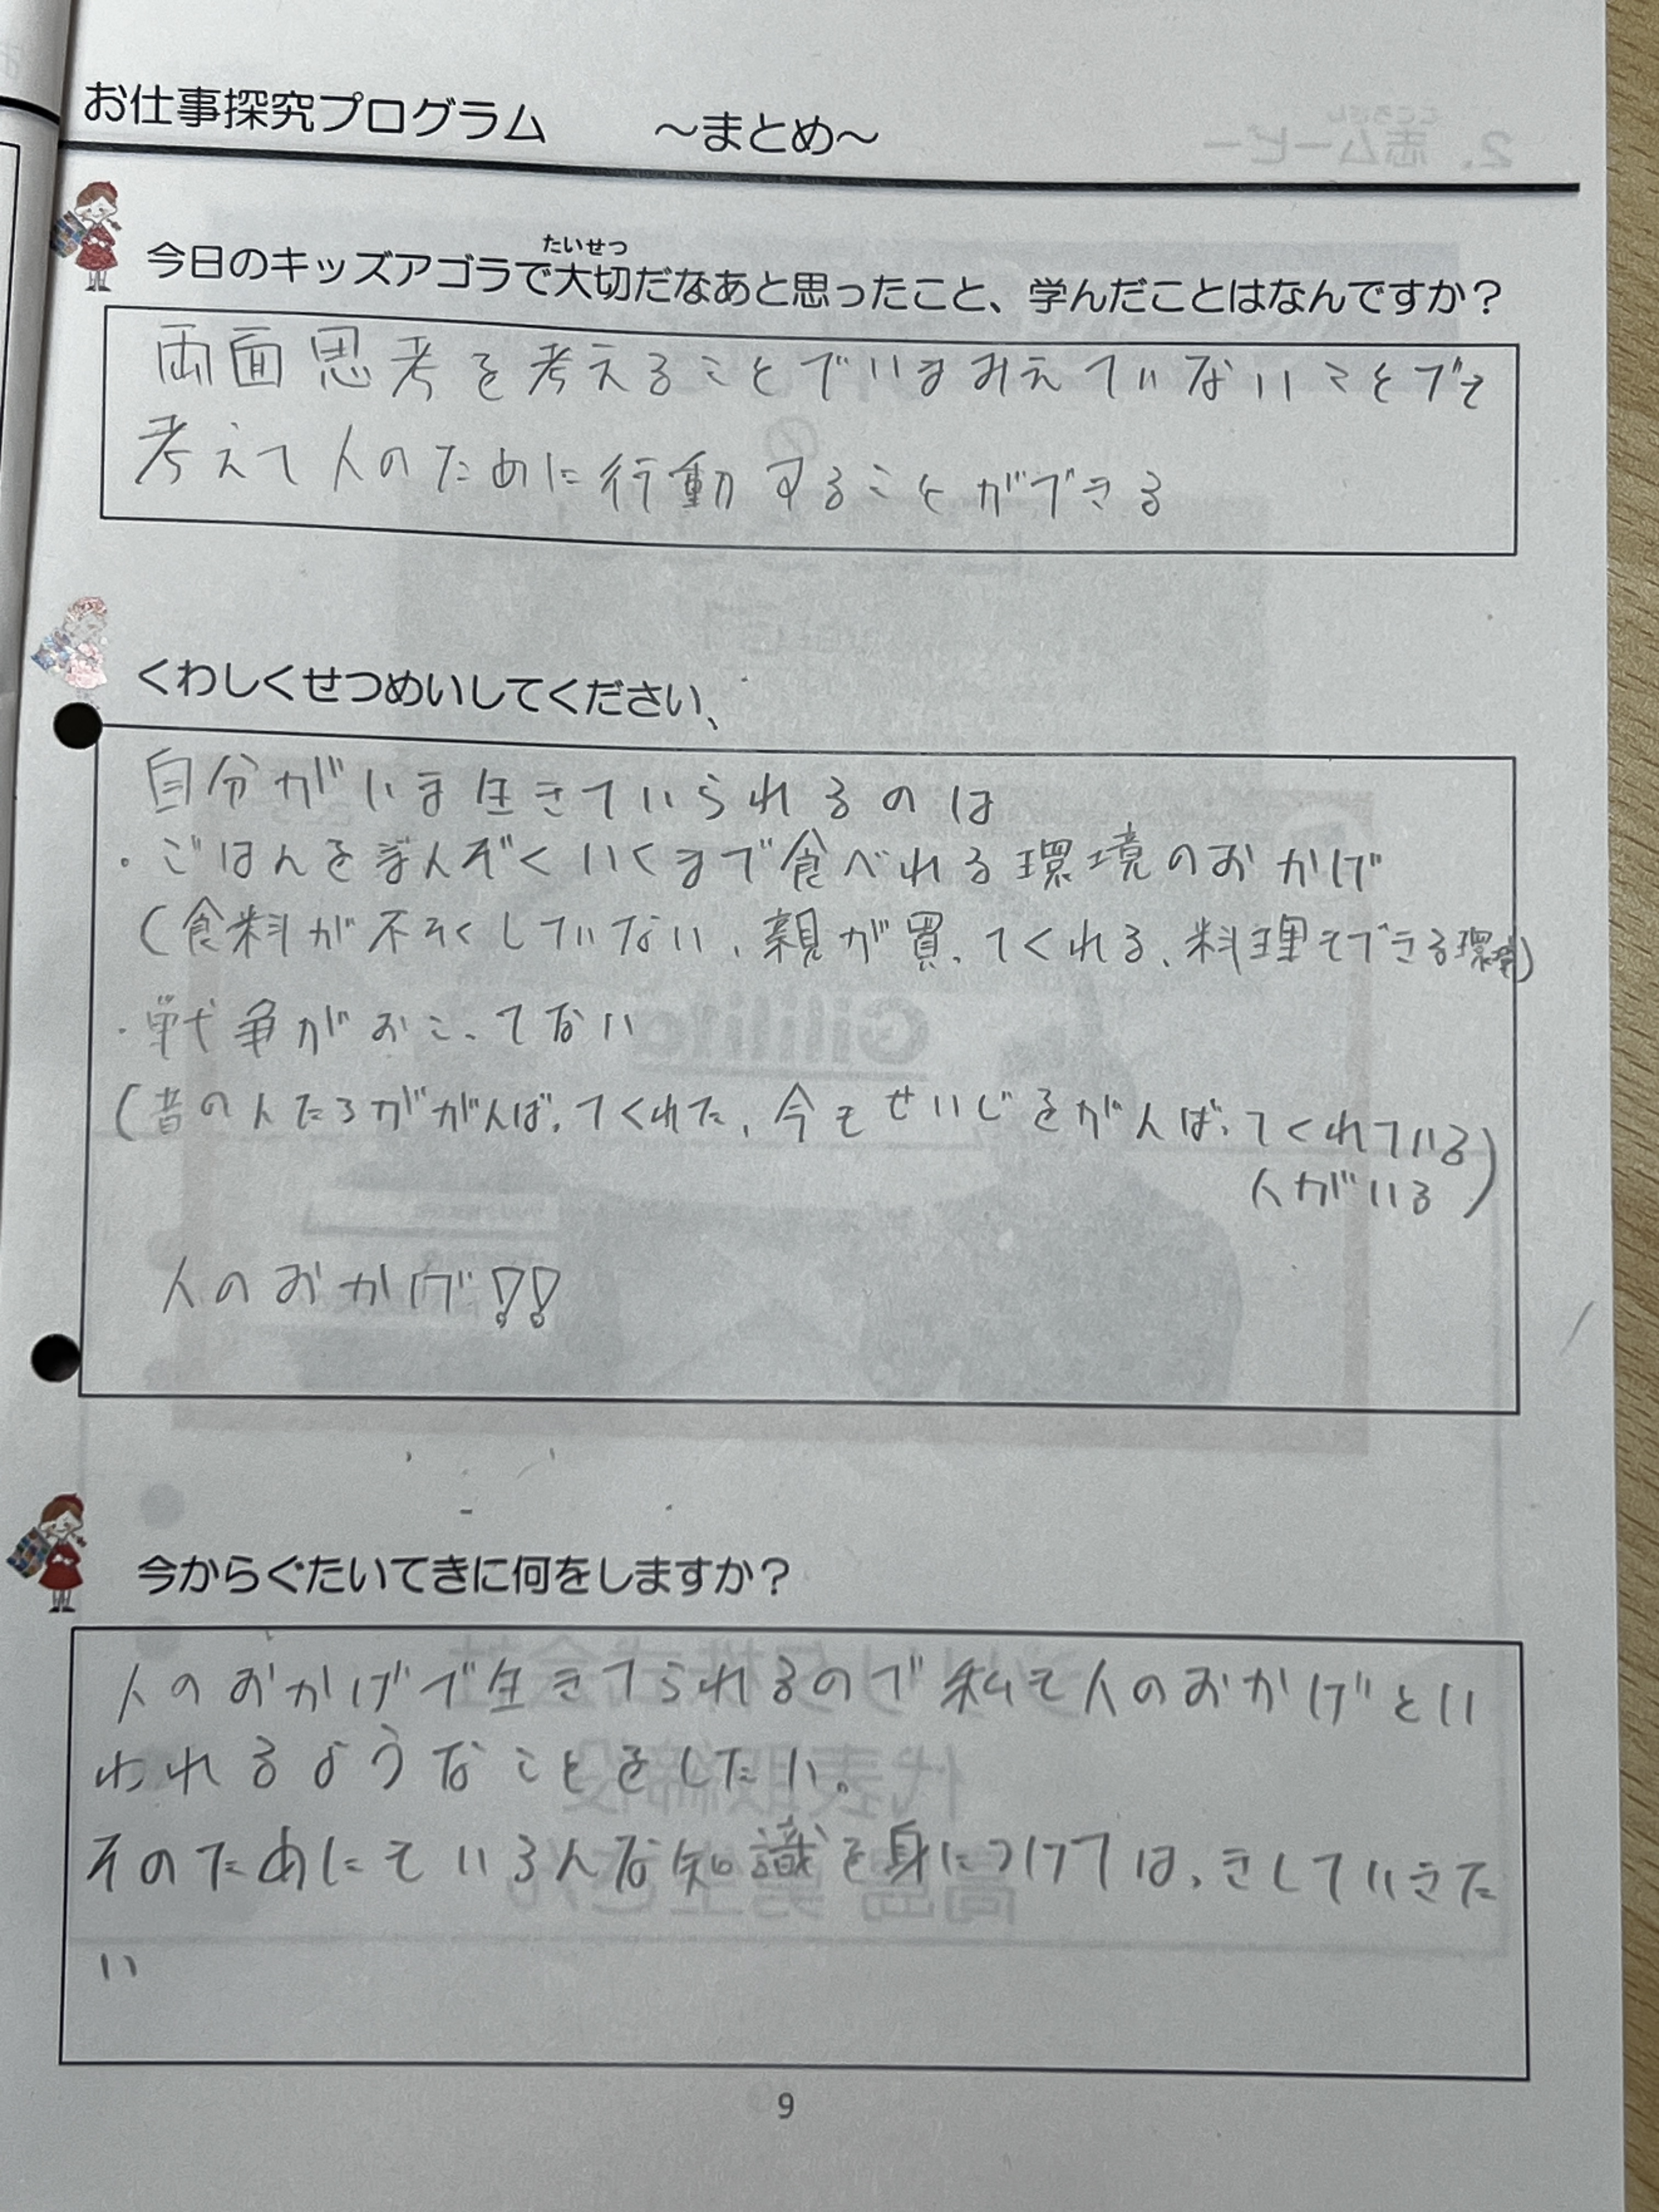 お仕事探究プログラム　～まとめ～
たいせつ
今日のキッズアゴラで大切だなあと思ったこと、学んだことはなんですか？
両面思考を考えることでいまみえていないことでも
考えて人のために行動することができる
くわしくせつめいしてください、
自分がいま生きていられるのは
・ごはんをまんぞくいくまで食べれる環境のおかげ
(食料が不そくしていない、親が買ってくれる、料理もできる環境)
・戦争がおこってない
(昔の人たちががんばってくれた、今もせいじをがんばってくれている
人がいる)
人のおかげ!!
今からぐたいてきに何をしますか？
人のおかげで生きてられるので私も人のおかげとい
われるようなことをしたい。
そのためにもいろんな知識を身につけてはっきしていきた
い
9